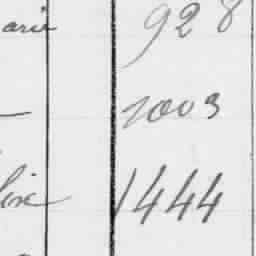 arie 928
1003
line 1444